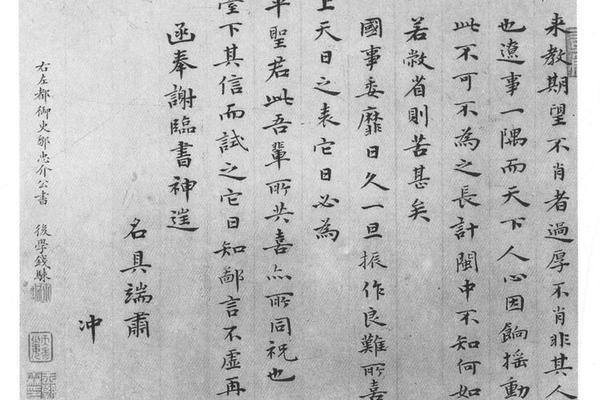 来教期望不肖者過厚不肖非其人
也遼事一隅而天下人心因餉搖動
此不可不為之長計閩中不知何如
若敝省則苦甚矣
國事委靡日久一旦振作良難所喜
上天日之表它日必為
平聖君此吾輩所共喜亦所同祝也
臺下其信而試之它日知鄙言不虛再
函奉謝臨書神
名具端肅
冲
右左都御史鄒忠介公書 後學錢